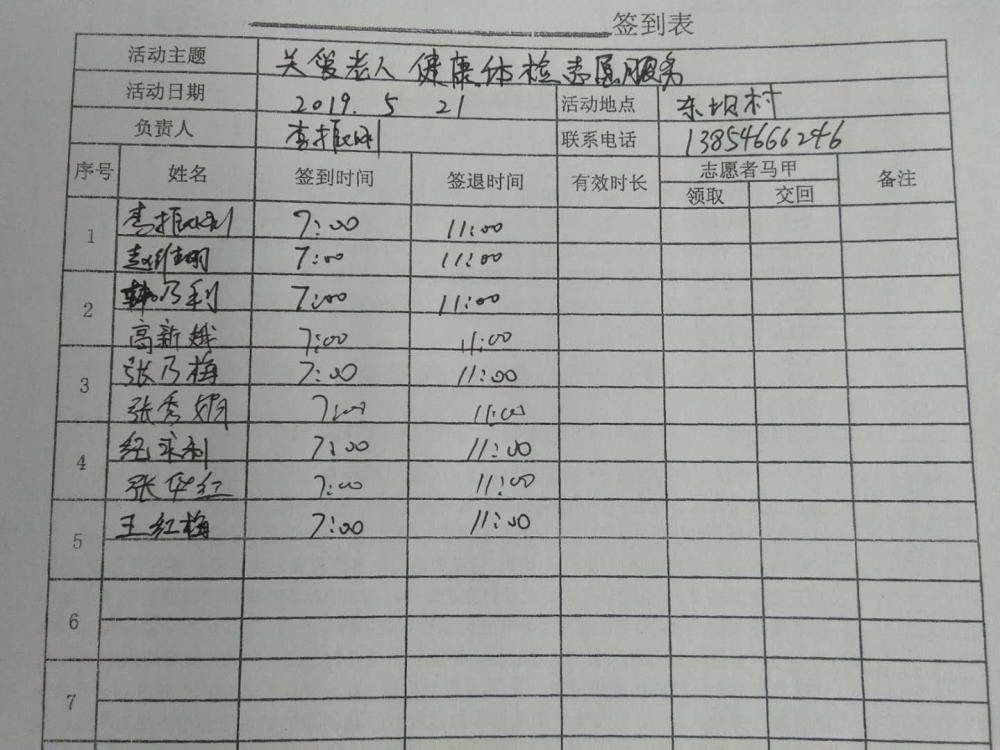 签到表
活动主题 关爱老人 健康体检志愿服务
活动日期 2019. 5 21 活动地点 东坝村
负责人 李振刚 联系电话 13854666246
序号 姓名 签到时间 签退时间 有效时长 志愿者马甲 备注
领取 交回
1 李振刚 7:00 11:00
7:00 11:00
2 韩乃利 7:00 11:00
高新娥 7:00 11:00
3 张乃梅 7:00 11:00
张秀娟 7:00 11:00
4 7:00 11:00
张华红 7:00 11:00
5 王红梅 7:00 11:00
6
7